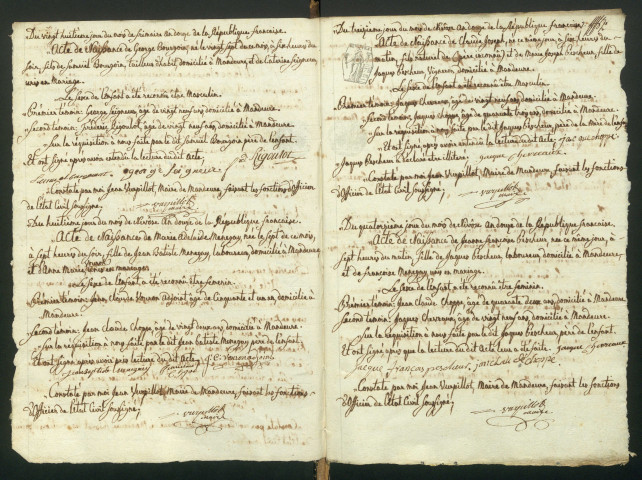 Du vingt huitieme jour du mois de frimaire an douze de la République française.
Acte de Naissance de George Bourgoin, né le vingt sept de ce mois, à six heures du
soir, fils de Samuel Bourgoin, tailleur d'habit, domicilié à Mandeure, et de Catherine Seigneur
unis en Mariage.
Le sexe de l'enfant a été reconnu être Masculin.
Premier temoin, George Seigneur, agé de vingt neuf ans, domicilié à Mandeure.
Second temoin, Frederic Rigoulot, agé de vingt neuf ans, domicilié à Mandeure.
Sur la réquisition à nous faite par le dit Samuel Bourgoin père de l'enfant.
Et ont signé après avoir entendu la lecture du dit Acte,
george Seignerer
Rigoulot
Constaté par moi Jean Vurpillot, Maire de Mandeure, faisant les fonctions d'Officier
de l'état Civil soussigné,
vurpillot
maire
Du huitieme jour du mois de Nivôse an douze de la République française.
Acte de Naissance de Marie Adelaïde Menegay, née le sept de ce mois,
à sept heures du soir, fille de Jean Batiste Menegay, laboureur domicilié à Mandeure
et Anne Marie unis en mariage
Le sexe de l'enfant a été reconnu être feminin.
Premier temoin, Jean Claude Vernier Adjoint, agé de Cinquante et un an, domicilié à
Mandeure.
Second temoin, Jean Claude Choppe, agé de vingt deux ans, domicilié à Mandeure.
Sur la réquisition à nous faite par le dit Jean Batiste Menegay père de l'enfant
Et ont signé après avoir pris lecture du dit Acte,
Constaté par moi Jean Vurpillot, Maire de Mandeure, faisant les fonctions
d'Officier de l'état Civil soussigné,
vurpillot
maire
Du treizieme jour du mois de Nivôse An douze de la République française
Acte de Naissance de Claude Joseph, né ce même jour, à six heures du
matin, fils naturel de (père reconnu) et de Marie Joseph Bercheux, fille de
Jaques Bercheux Vigneron, domicilié à Mandeure.
Le sexe de l'enfant a été reconnu être Masculin.
Premier temoin, Jaques Chavenne, agé de vingt neuf ans, domicilié à Mandeure.
Second temoin, Jaques Choppe, agé de quarante trois ans, domicilié à Mandeure.
Sur la réquisition à nous faite par le dit Jaques Bercheux, père de la Mère de l'enfant
Et ont signé après avoir entendu la lecture du dit Acte,
Jaques Bercheux a déclaré être illitéré.
Constaté par moi Jean Vurpillot, Maire de Mandeure, faisant les fonctions
d'Officier de l'état Civil soussigné,
vurpillot
maire
Du quatorzieme jour du mois de Nivôse An douze de la République française.
Acte de Naissance de Jeanne françoise Bercheux, née ce même jour, à
sept heures du matin, fille de Jaques Bercheux, laboureur, domicilié à Mandeure,
et de francoise Menegay unis en mariage.
Le sexe de l'enfant a été reconnu être feminin.
Premier temoin, Jean Claude Choppe, agé de quarante deux ans, domicilié à Mandeure
Second temoin, Jaques Chavenne, agé de vingt neuf ans, domicilié à Mandeure.
Sur la réquisition à nous faite par le dit Jaques Bercheux père de l'enfant.
Et ont signé après que la lecture du dit Acte leur a été faite,
Constaté par moi Jean Vurpillot, Maire de Mandeure, faisant les fonctions
d'Officier de l'état Civil soussigné,
vurpillot
maire